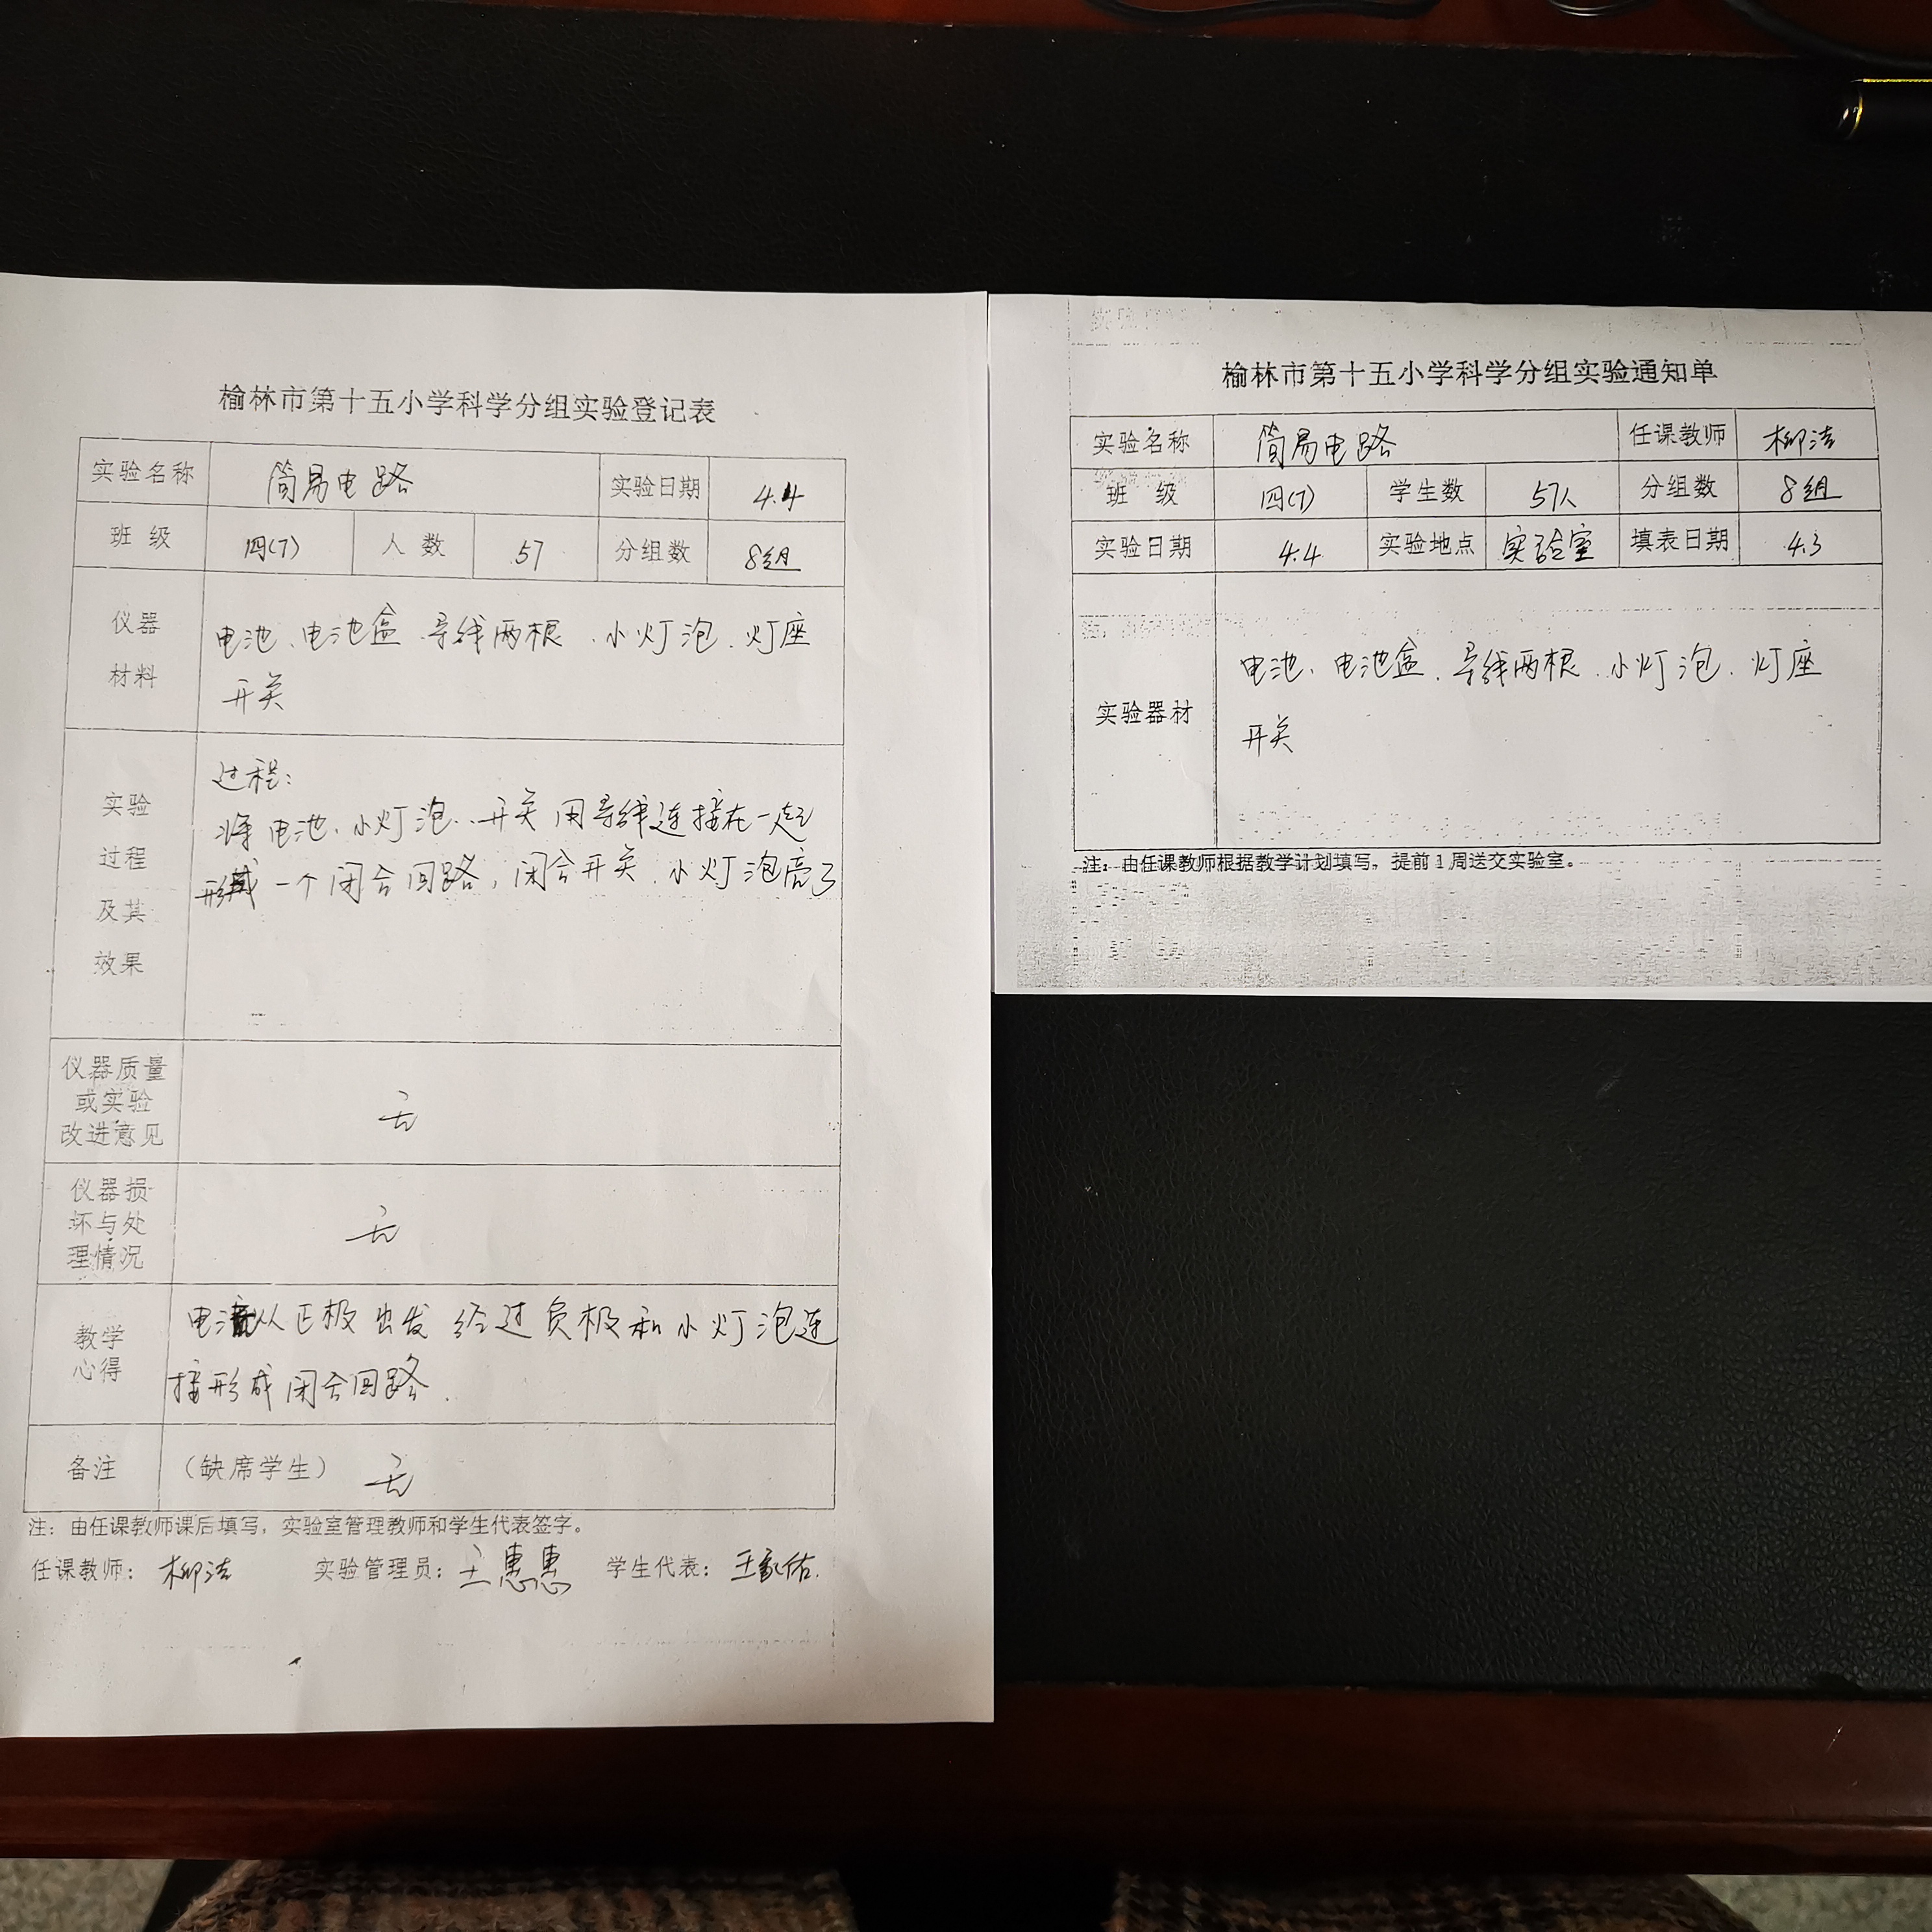 榆林市第十五小学科学分组实验登记表
实验名称 简易电路 实验日期 4.4
班级 四(7) 人数 57 分组数 8组
仪器材料 电池、电池盒、导线两根、小灯泡、灯座
开关
实验过程及其效果 过程:
将电池、小灯泡、开关用导线连接在一起
形成一个闭合回路,闭合开关,小灯泡亮了
仪器质量或实验改进意见 无
仪器损坏与处理情况 无
教学心得 电流从正极出发经过负极和小灯泡连
接形成闭合回路.
备注 (缺席学生) 无
注:由任课教师课后填写,实验室管理教师和学生代表签字。
任课教师:柳洁 实验管理员:王惠惠 学生代表:王家佑.
榆林市第十五小学科学分组实验通知单
实验名称 简易电路 任课教师 柳洁
班级 四(7) 学生数 57人 分组数 8组
实验日期 4.4 实验地点 实验室 填表日期 4.3
实验器材 电池、电池盒、导线两根、小灯泡、灯座
开关
注:由任课教师根据教学计划填写,提前1周送交实验室。